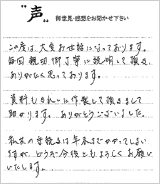 "声"
御意見・感想をお聞かせ下さい
この度は、大変お世話になっております。
毎回親切丁寧に説明して頂き、
ありがたく思っております。
資料もきれいに作製して頂きまして
助かります。ありがとうございました。
私共の登録はまだかかってしまい
ますが、どうぞ今後ともよろしくお願い
いたします。